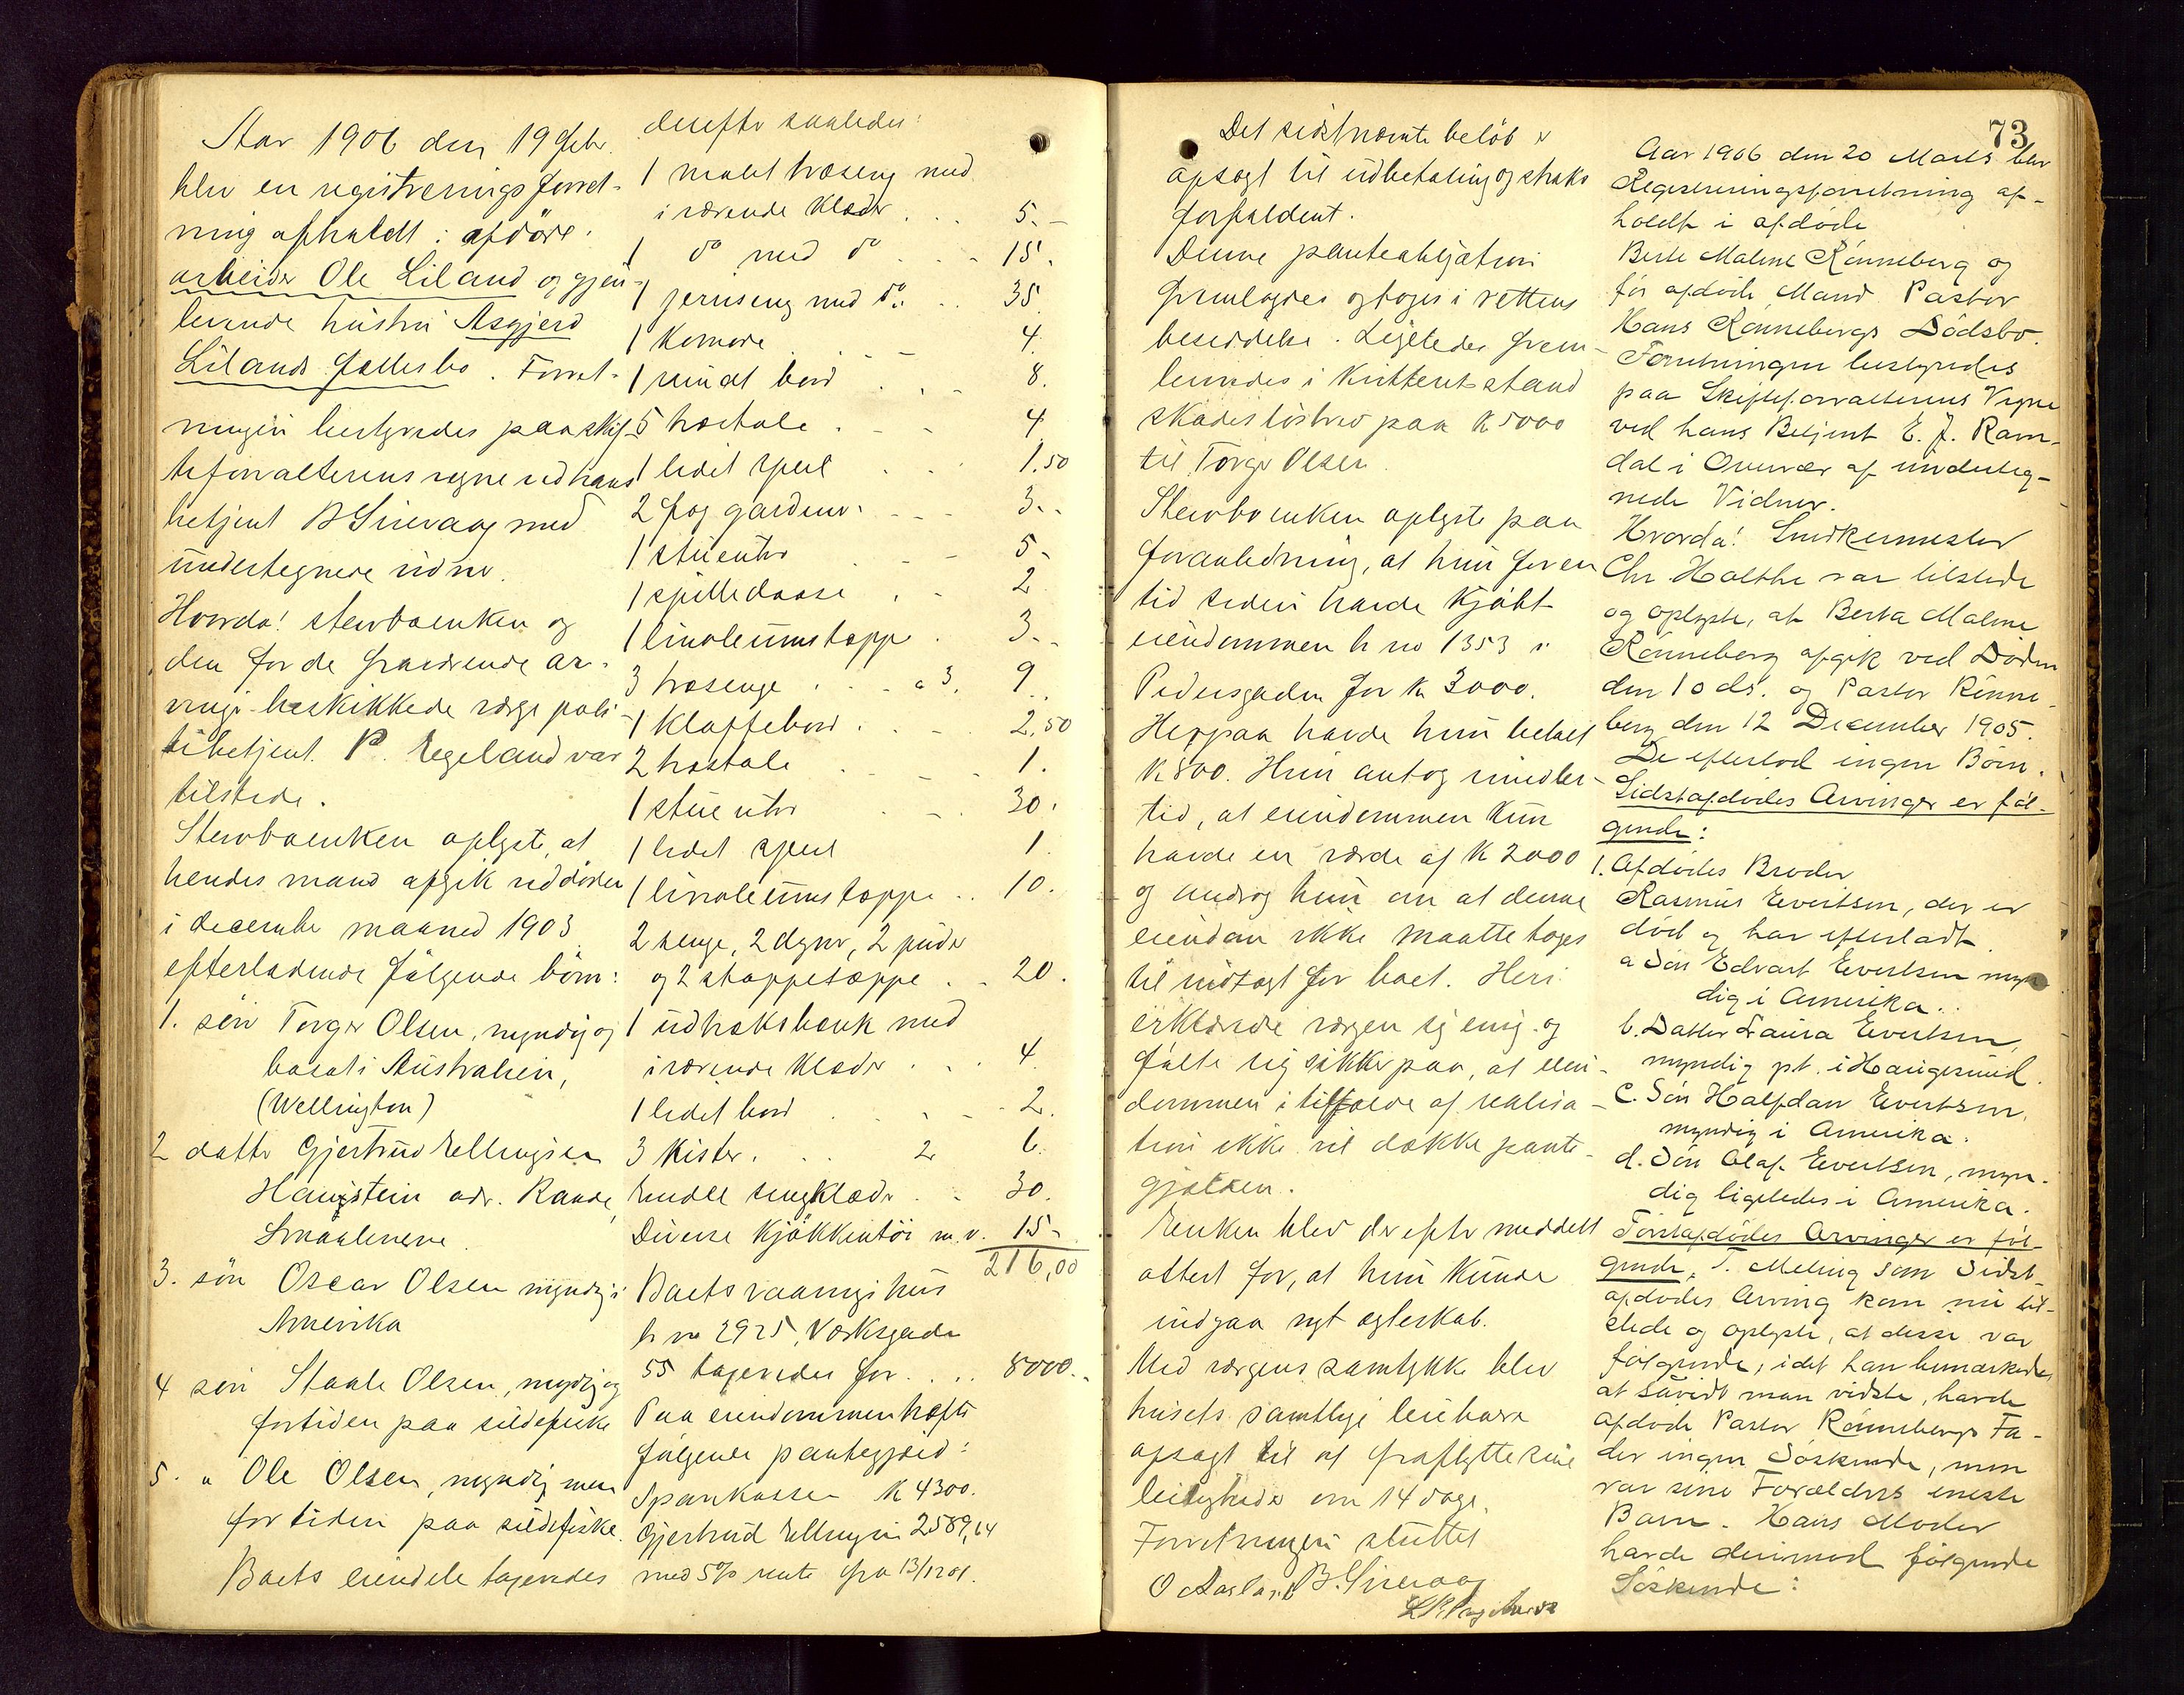 Aar 1906 den 19 febr.
blev en registreringsforret-
ning afholdt i afdöde
arbeider Ole Liland og gjen-
levende hustru Asgjerd
Lilands fællesbo. Forret-
ningen bestyredes paa skif-
teforvalterens vegne ved hans
betjent B Sirevaag med
undertegnede vidner.
Hvorda! stervboenken og
den for de fraværende ar-
vinger beskikkede værge poli-
tibetjent P. Egeland var
tilstede.
Stervboenken oplyste, at
hendes mand afgik ved döden
i december maaned 1903
efterladende fölgende börn:
1. sön Torger Olsen, myndig og
bosat i Australien,
(Wellington)
2 datter Gjertrud Ellingsen
Haugstein adr. Raade,
Smaalenene
3. sön Oscar Olsen myndig i
Amerika
4 sön Staale Olsen, myndig og
fortiden paa sildefiske
5. " Ole Olsen, myndig men
fortiden paa sildefiske.
Boets eiendele taxeredes
derefter saaledes:
1 malet træseng med
iværende klæder . . . 5.-
1 do med do . . . 15.
1 jernseng med do. . . 35.
1 Komode . . . 4.
1 rundt bord . . . 8.
5 træstole . . . 4
1 lidet speil . . . 1.50
2 fag gardiner . . . 3.-
1 stueuhr . . . 5-
1 spilledaase . . 2
1 linoleumstæppe . 3.-
3 træsenge . . . a 3. 9.
1 klaffebord . . . 2,50
2 træstole . . . 1.
1 stueuhr . . . 30.
1 lidet speil 1.
1 linoleumstæppe . . 10.
2 senge, 2 dyner, 2 puder
og 2 stoppetæpper . . 20.
1 udtræksbænk med
iværende klæder . . . 4
1 lidet bord . . . 2.
3 kister . . . 2 6.
Endel sengklæder . . 30.
Diverse kjökkentöi m.v. 15-
216,00
Boets vaaningshus
br no 2925, Værksgaden
55 taxeredes for . . . . 8000.-
Paa eiendommen hefter
fölgende pantegjæld:
Sparekassen K 4300.
Gjertrud Ellingsen 2589,64
med 5% rente fra 13/12 01.
Det sidstnævnte belöb er
opsagt til udbetaling og straks
forfaldent.
Denne panteobligation
fremlagdes og toges i rettens
besiddelse. Ligeledes frem-
levendes i kvitteret stand
skadeslösbrev paa K 5000
til Torger Olsen.
Stervboenken oplyste paa
foranledning, at hun for en
tid siden havde kjöbt
eiendommen br no 1353 i
Pedersgaden for K 3000.
Herpaa havde hun betalt
K 800. Hun antog imidler-
tid, at eiendommen kun
havde en værdi af K 2000
og androg hun om at denne
eiendom ikke maatte tages
til indtægt for boet. Heri
erklærede værgen sig enig og
fölte sig sikker paa, at eien-
dommen i tilfælde af realisa-
tion ikke vil dække pante-
gjælden.
Enken blev derefter meddelt
attest for, at hun kunde
indgaa nyt egteskab.
Med værgens samtykke blev
husets samtlige leieboere
opsagt til at fraflytte sine
leiligheder om 14 dage.
Forretningen sluttet
O Aasland B. Sirevaag
73
Aar 1906 den 20 Marts blev
Registreringsforretning af-
holdt i afdöde
Berte Malene Rönneberg og
för afdöde Mand Pastor
Hans Rönnebergs Dödsbo.
Forretningen bestyredes
paa Skifteforvalterens Vegne
ved hans Betjent E. J. Ram-
dal i Overvær af underteg-
nede Vidner.
Hvorda! Snedkermester
Chr Holthe var tilstede
og oplyste, at Berta Malene
Rönneberg afgik ved Döden
den 10 ds. og Pastor Rönne-
berg den 12 December 1905.
De efterlod ingen Börn.
Sidstafdödes Arvinger er föl-
gende:
1. Afdödes Broder
Rasmus Evertsen, der er
död og har efterladt
a Sön Edvart Evertsen myn-
dig i Amerika.
b. Datter Laura Evertsen,
myndig pt. i Haugesund.
C. Sön Halfdan Evertsen,
myndig i Amerika.
d. Sön Olaf Evertsen, myn-
dig ligeledes i Amerika.
Förstafdödes Arvinger er föl-
gende, S. Meling som Sidst-
afdödes Arving kom nu til-
stede og oplyste, at disse var
fölgende, idet han bemærkede
at såvidt man vidste, havde
afdöde Pastor Rönnebergs Fa-
der ingen Söskende, men
var sine Forældres eneste
Barn. Hans Moder
havde derimod fölgende
Söskende: